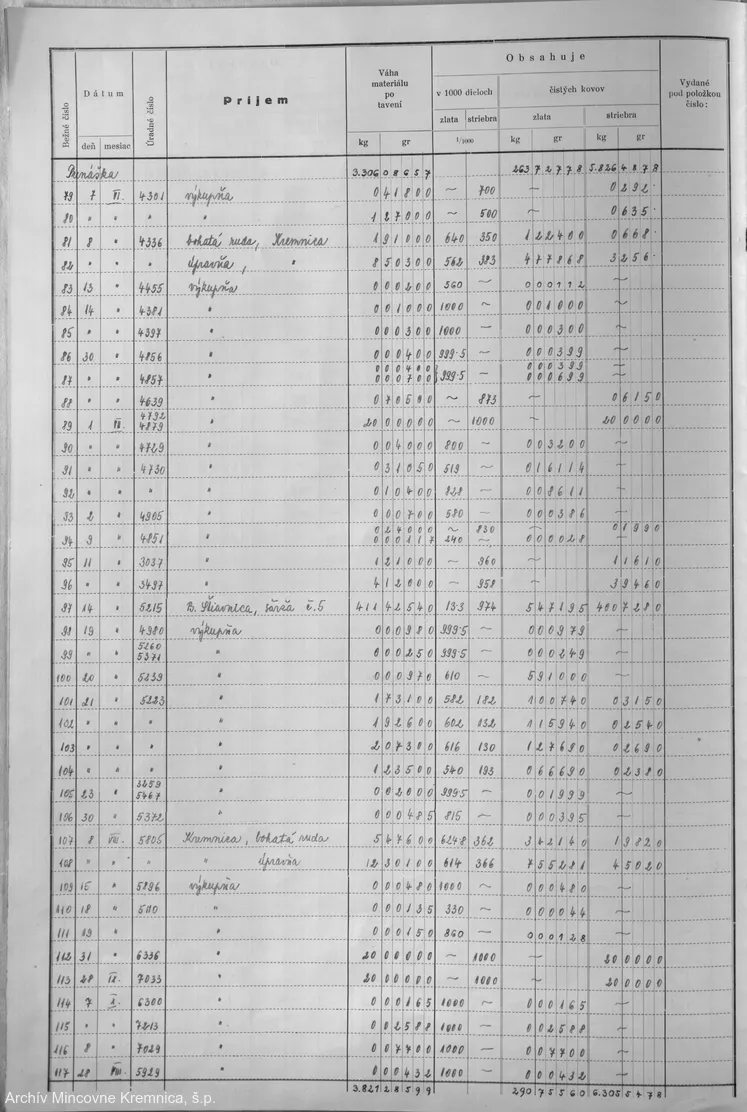 Obsahuje
Bežné číslo
Dátum
deň
mesiac
Úradné číslo
Príjem
Váha materiálu po tavení
kg
gr
v 1000 dieloch
zlata
striebra
1/1000
čistých kovov
zlata
striebra
kg
gr
kg
gr
Vydané pod položkou číslo:
Prenáška 3.306 08657 263 72778 5.826 4878
79 7 VI. 4301 výkupňa 0 41800 ~ 700 ~ 0 292
80 " " " " 1 27000 ~ 500 ~ 0 635
81 8 " 4336 bohatá ruda, Kremnica 1 91000 640 350 1 22400 0 668
82 " " " úpravňa, " 8 50300 562 383 4 77868 3 256
83 13 " 4455 výkupňa 0 00200 560 ~ 0 00112 ~
84 14 " 4381 " 0 01000 1000 ~ 0 01000 ~
85 " " 4397 " 0 00300 1000 ~ 0 00300 ~
86 30 " 4856 " 0 00400 999·5 ~ 0 00399 ~
0 00400 0 00399
87 " " 4857 " 0 00700 999·5 ~ 0 00699 ~
88 " " 4639 " 0 70500 ~ 873 ~ 0 6150
4792
89 1 VII. 4879 " 20 00000 ~ 1000 ~ 20 0000
90 " " 4729 " 0 04000 800 ~ 0 03200 ~
91 " " 4730 " 0 31050 519 ~ 0 16114 ~
92 " " " " 0 10400 828 ~ 0 08611 ~
93 2 " 4905 " 0 00700 580 ~ 0 00386 ~
0 24000 ~ 830 ~ 0 1990
94 9 " 4851 " 0 00117 240 ~ 0 00028 ~
95 11 " 3037 " 1 21000 ~ 960 ~ 1 1610
96 " " 3497 " 4 12000 ~ 958 ~ 3 9460
97 14 " 5215 B. Štiavnica, šarža č. 5 411 42540 13·3 974 5 47195 400 7280
98 19 " 4980 výkupňa 0 00980 999·5 ~ 0 00979 ~
5260
99 " " 5371 " 0 00250 999·5 ~ 0 00249 ~
100 20 " 5239 " 0 00970 610 ~ 5 91000 ~
101 21 " 5223 " 1 73100 582 182 1 00740 0 3150
102 " " " " 1 92600 602 132 1 15940 0 2540
103 " " " " 2 07300 616 130 1 27690 0 2690
104 " " " " 1 23500 540 193 0 66690 0 2380
5459
105 23 " 5467 " 0 02000 999·5 ~ 0 01999 ~
106 30 " 5372 " 0 00485 815 ~ 0 00395 ~
107 8 VIII. 5805 Kremnica, bohatá ruda 5 47600 624·8 362 3 42140 1 9820
108 " " " " úpravňa 12 30100 614 366 7 55281 4 5020
109 15 " 5896 výkupňa 0 00480 1000 ~ 0 00480 ~
110 18 " 5110 " 0 00135 330 ~ 0 00044 ~
111 19 " " 0 00150 860 ~ 0 00128 ~
112 31 " 6336 " 20 00000 ~ 1000 ~ 20 0000
113 28 IX. 7033 " 20 00000 ~ 1000 ~ 20 0000
114 7 X. 6300 " 0 00165 1000 ~ 0 00165 ~
115 " " 7213 " 0 02588 1000 ~ 0 02588 ~
116 8 " 7029 " 0 07700 1000 ~ 0 07700 ~
117 28 VIII. 5929 " 0 00432 1000 ~ 0 00432 ~
3.821 28599 290 75560 6.305 5478
Archív Mincovne Kremnica, š.p.